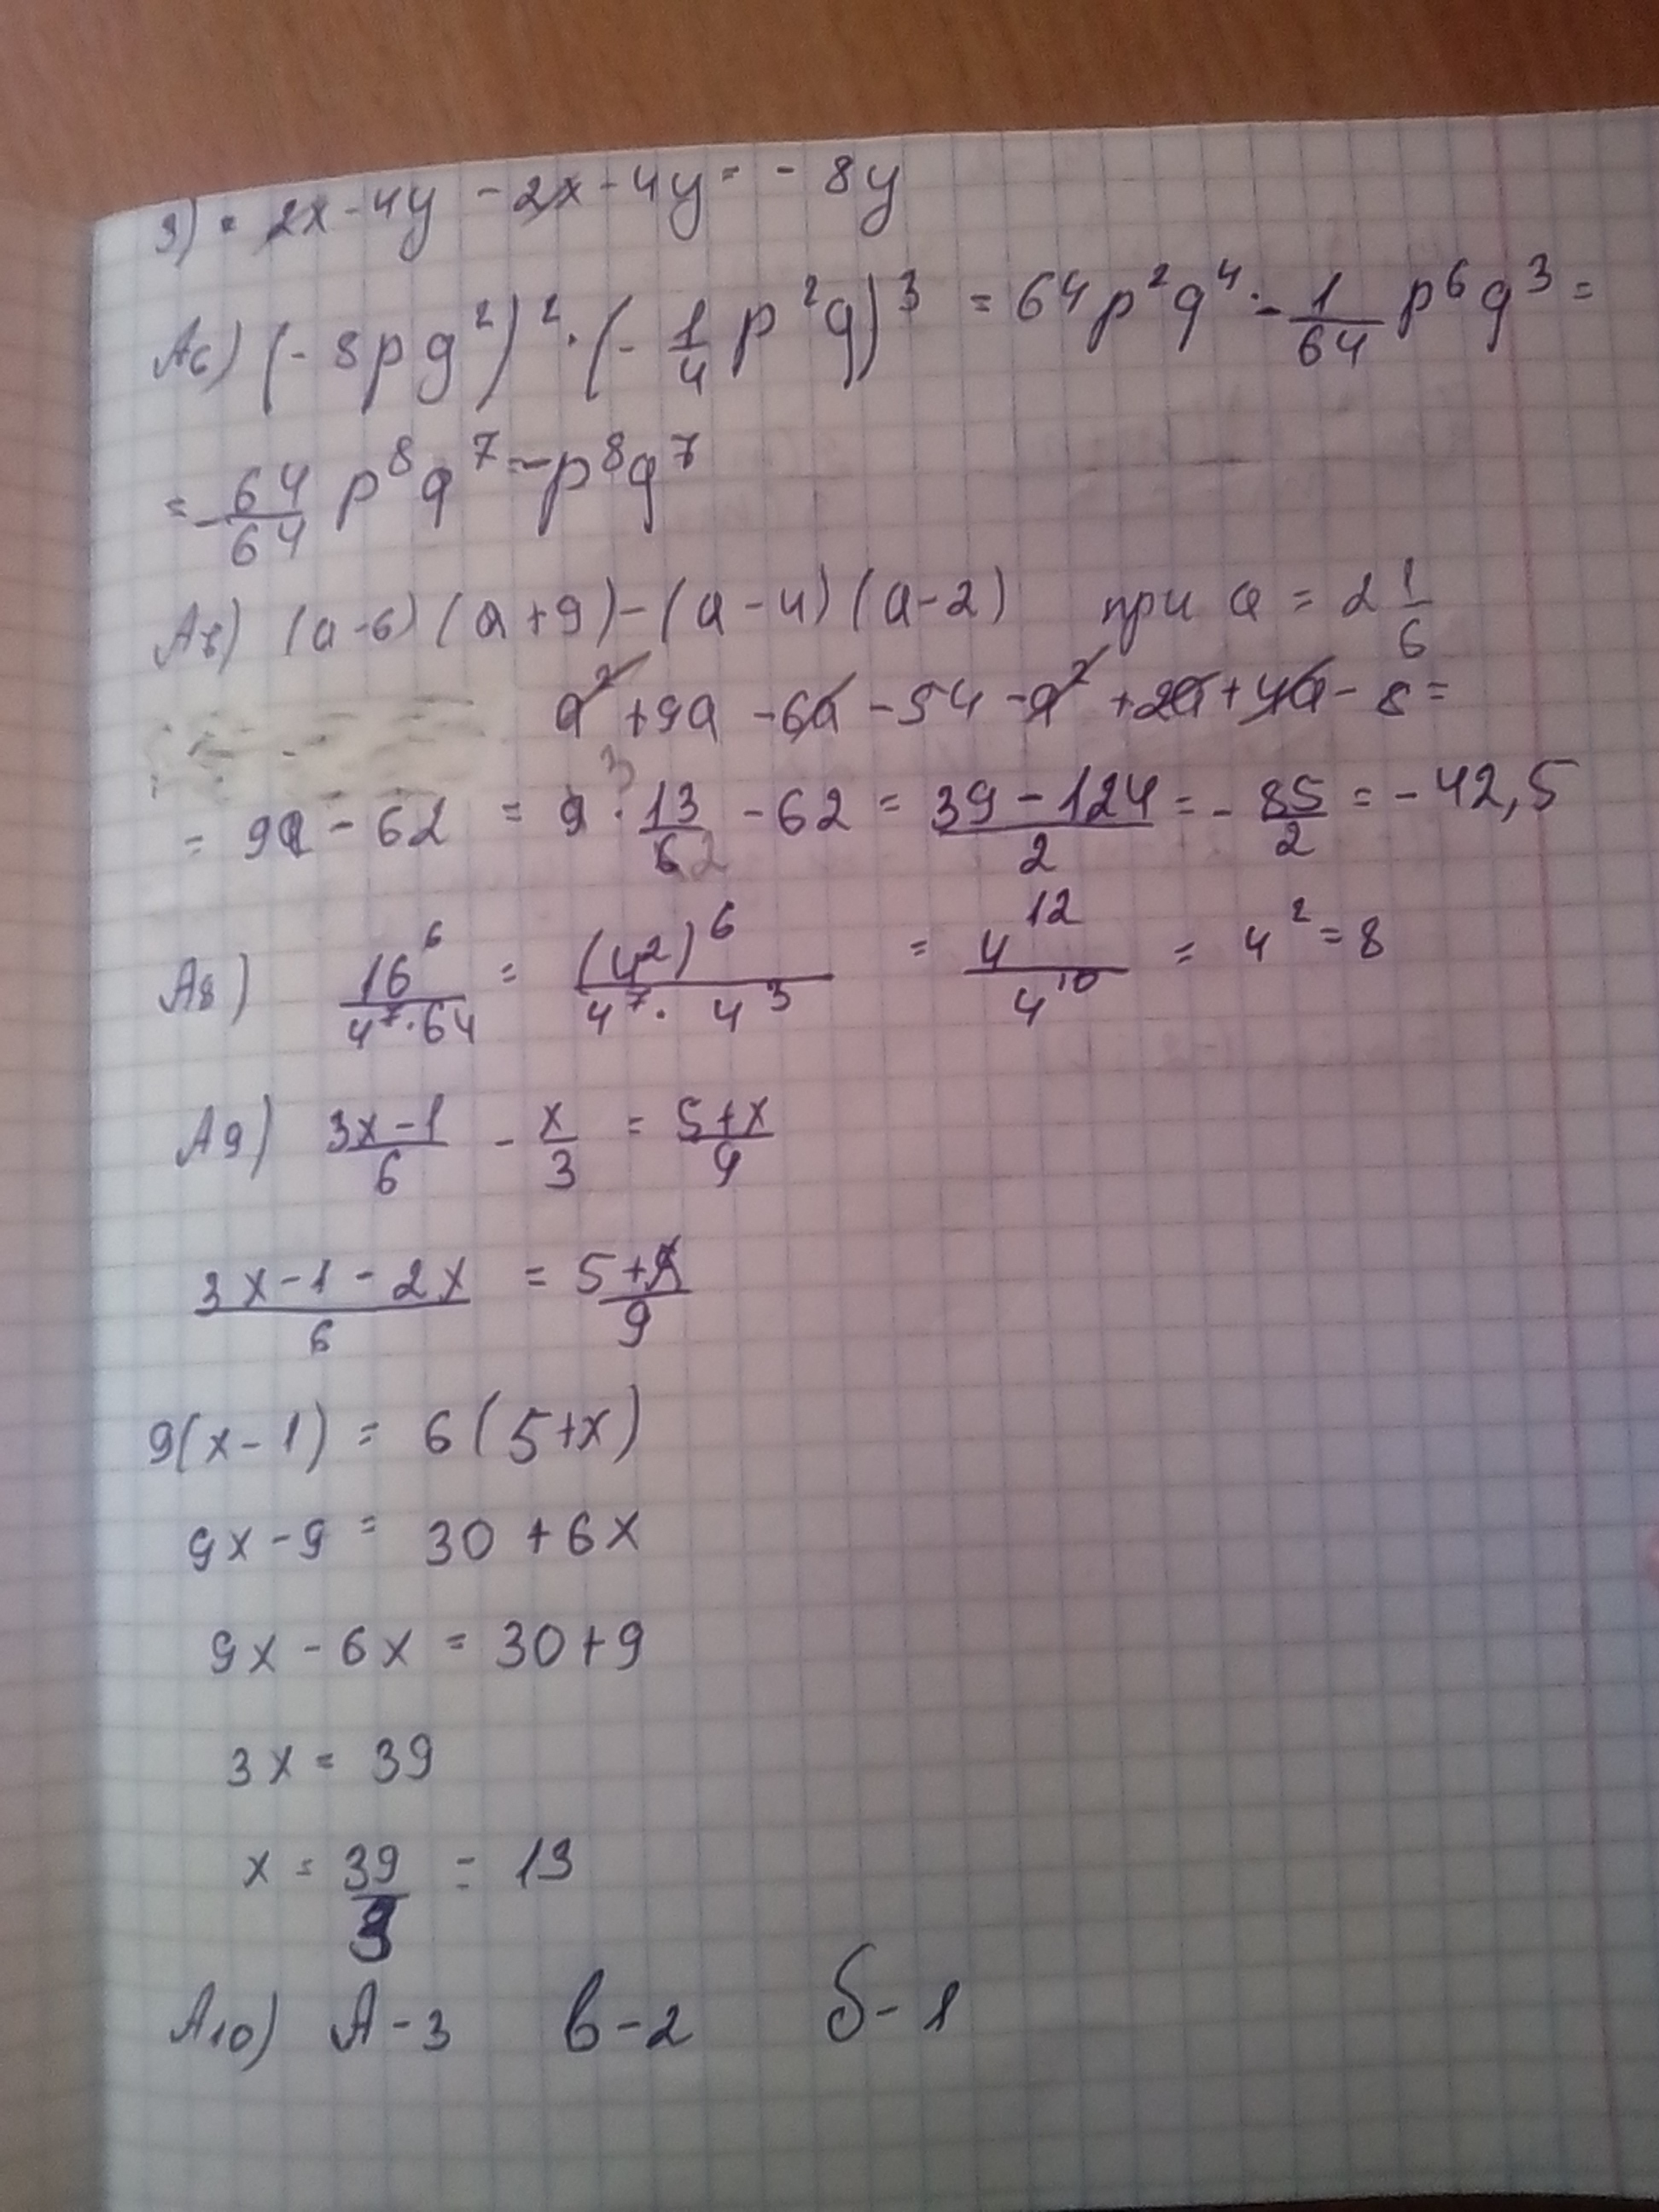 3) = 2x - 4y - 2x - 4y = - 8y
А6) (- 8pq²)² · (- 1/4 p²q)³ = 64p²q⁴ · - 1/64 p⁶q³ =
= - 64/64 p⁸q⁷ = -p⁸q⁷
(a - 6) (a + 9) - (a - 4) (a - 2) при a = 2 1/6
a² + 9a - 6a - 54 - a² + 2a + 4a - 8 =
= 9a - 62 = 9 3 · 13/6 2 - 62 = (39 - 124)/2 = - 85/2 = - 42,5
А8) 16⁶/(4⁷ · 64) = (4²)⁶/(4⁷ · 4³) = 4¹²/4¹⁰ = 4² = 8
А9) (3x - 1)/6 - x/3 = (5 + x)/9
(3x - 1 - 2x)/6 = (5 + x)/9
9(x - 1) = 6(5 + x)
9x - 9 = 30 + 6x
9x - 6x = 30 + 9
3x = 39
x = 39/3 = 13
А10) А - 3 в - 2 б - 1